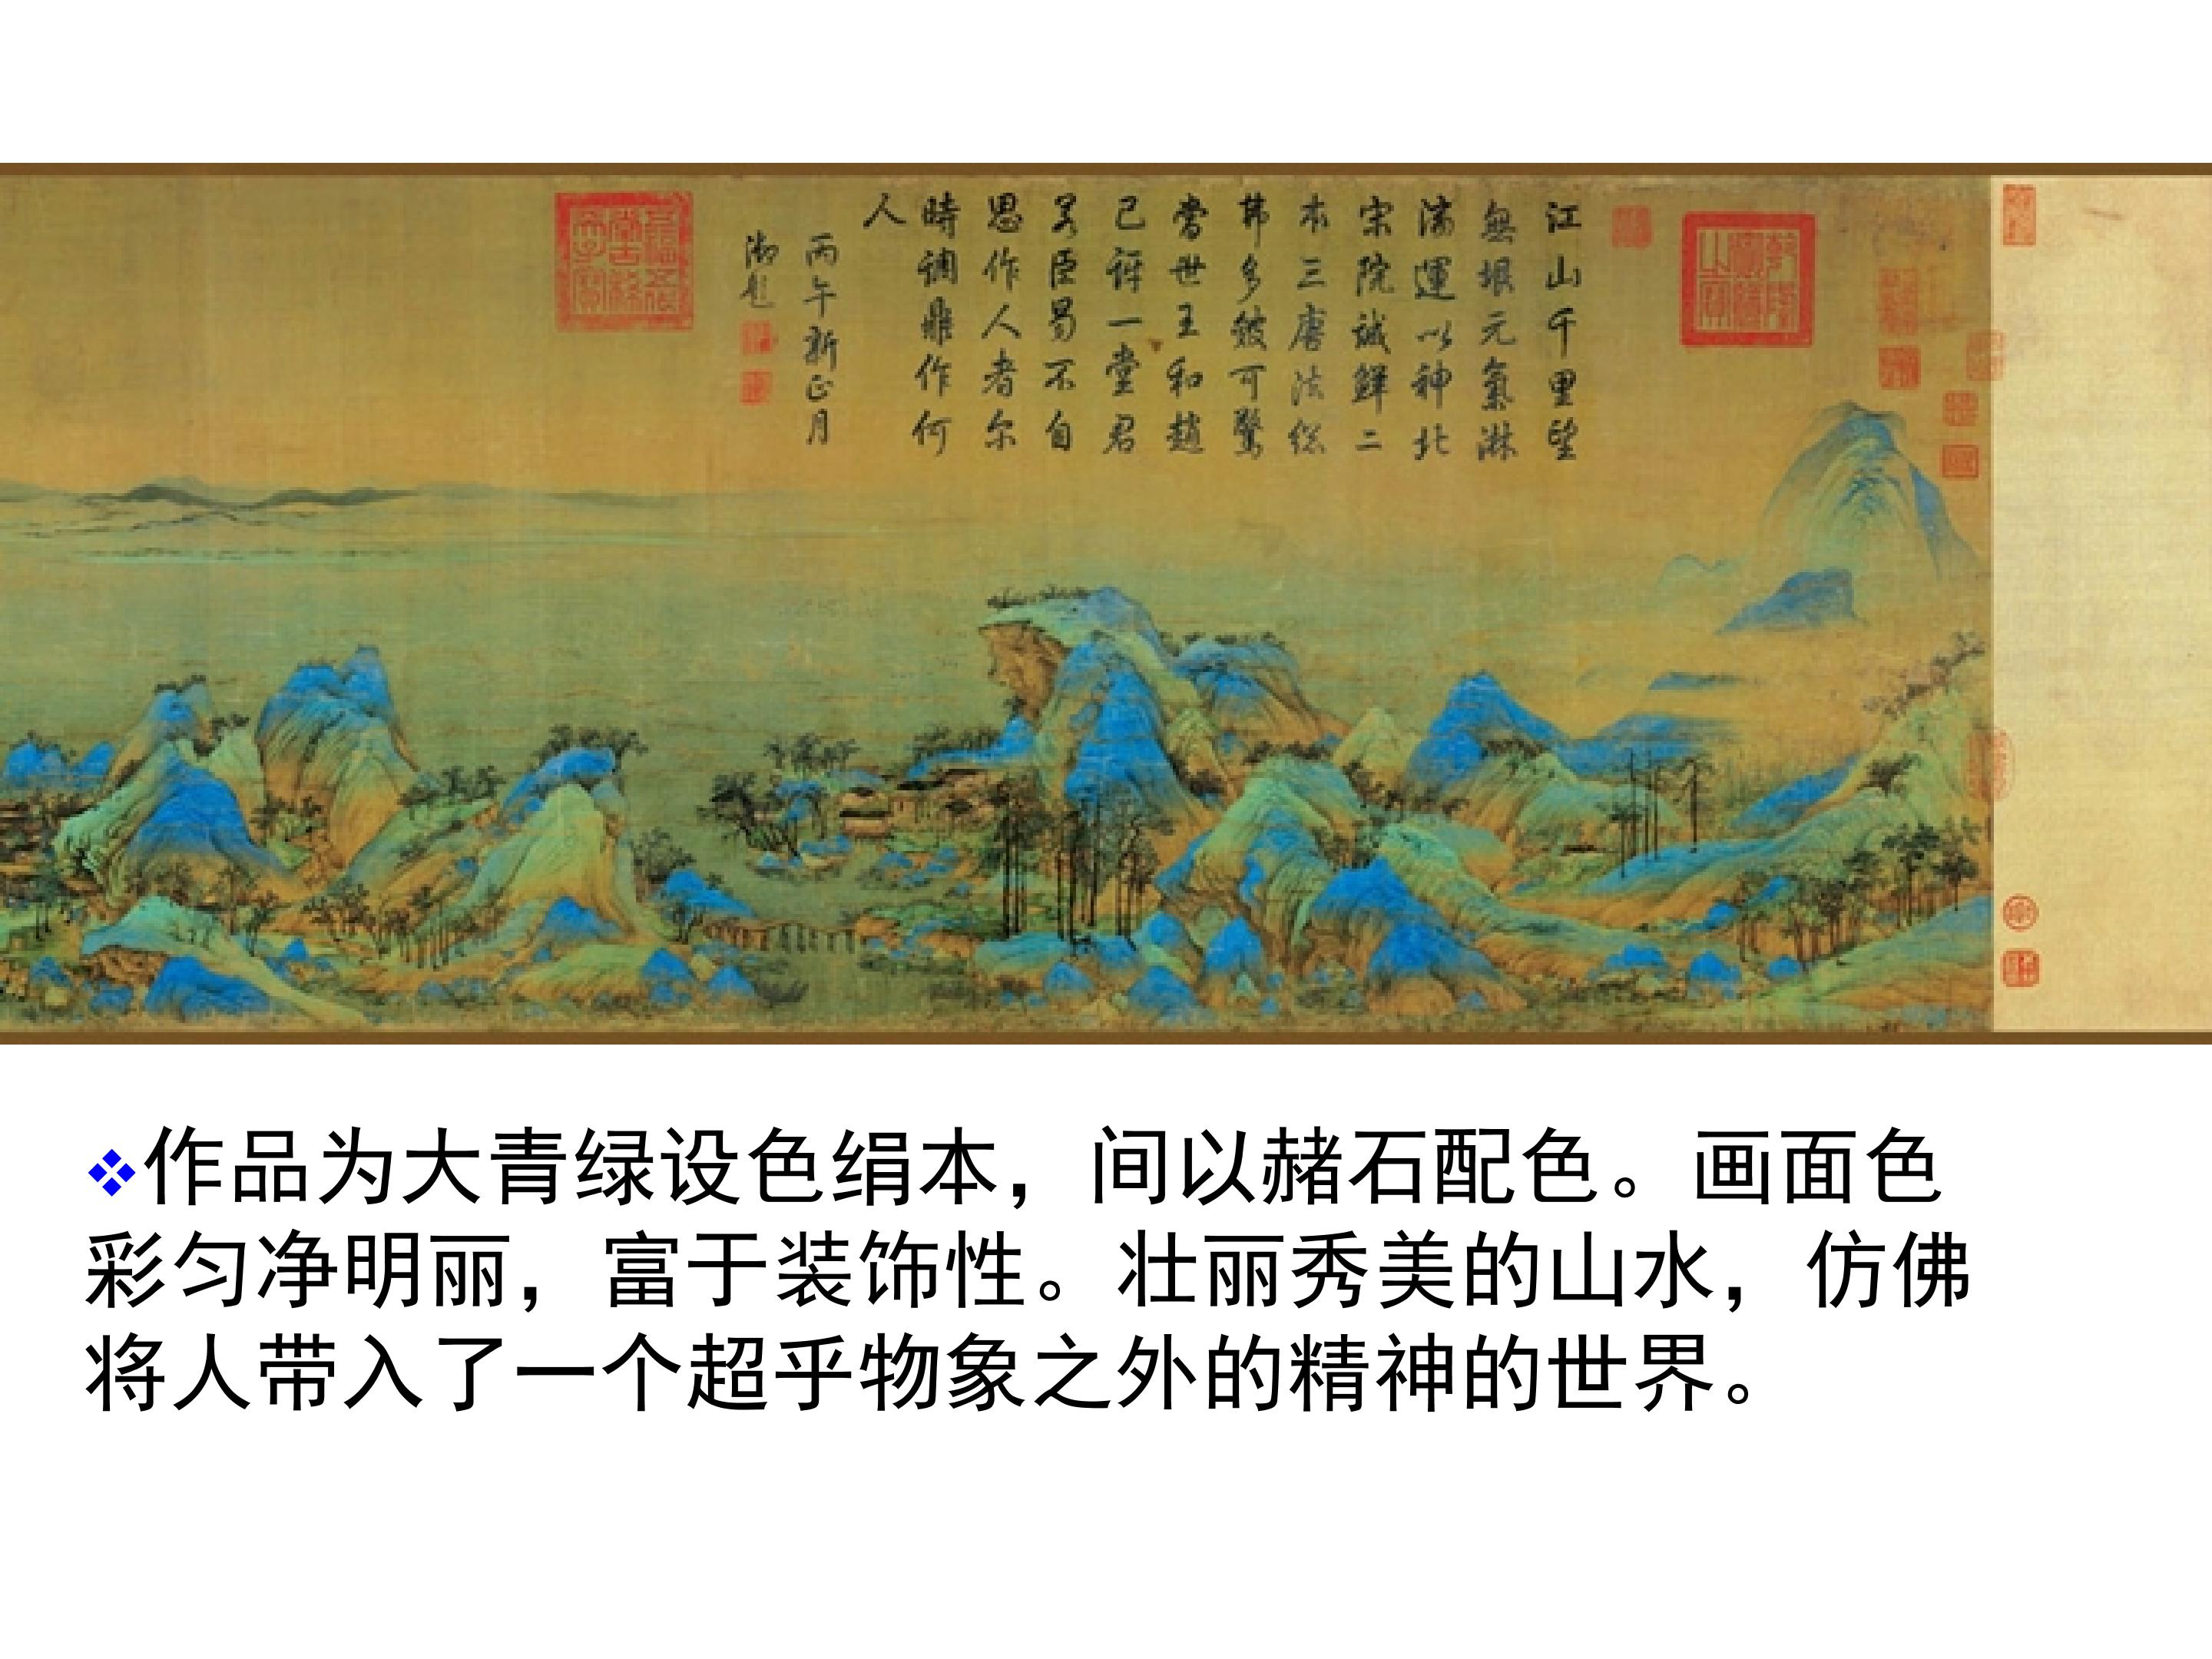 江山千里望
無垠元氣淋
漓運以神北
宋院誠鮮二
本三唐法總
弗多皴可驚
當世王和趙
已訝一堂君
若臣曷不自
思作人者尔
時調鼎作何
人
丙午新正月
御題
作品为大青绿设色绢本，间以赭石配色。画面色
彩匀净明丽，富于装饰性。壮丽秀美的山水，仿佛
将人带入了一个超乎物象之外的精神的世界。